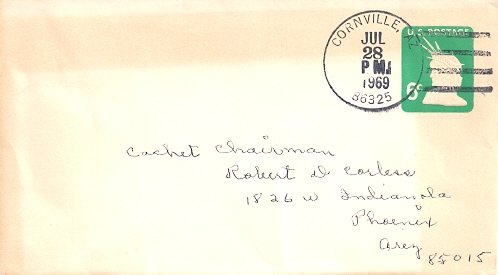 CORNVILLE,
JUL
28
PM
1969
86325
U.S. POSTAGE
6c
Cachet Chairman
Robert D Corless
1826 W Indianola
Phoenix
Arez
85015